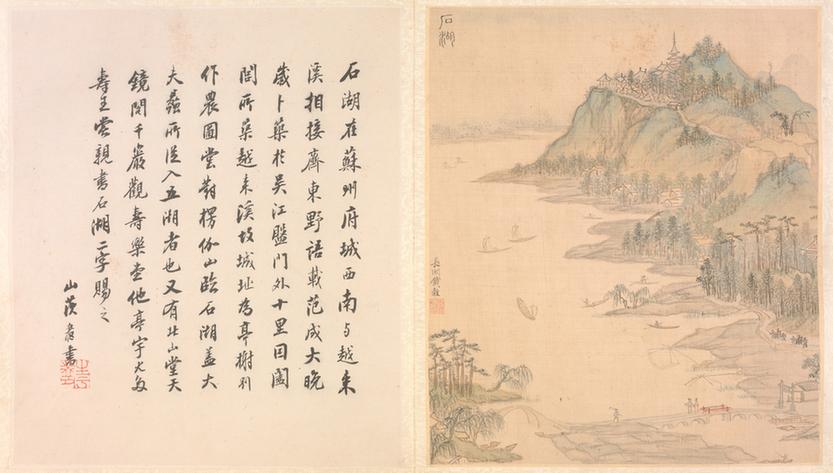 石湖在蘇州府城西南与越来
溪相接齊東野語載范成大晚
歲卜築於吳江盤門外十里因闔
閭所築越来溪故城址為亭榭別
作農圃堂對楞伽山臨石湖盖大
夫蠡所従入五湖者也又有北山堂天
鏡閣千巖觀壽樂堂他亭宇尤多
壽皇嘗親書石湖二字賜之
山茨書
石湖
長洲錢